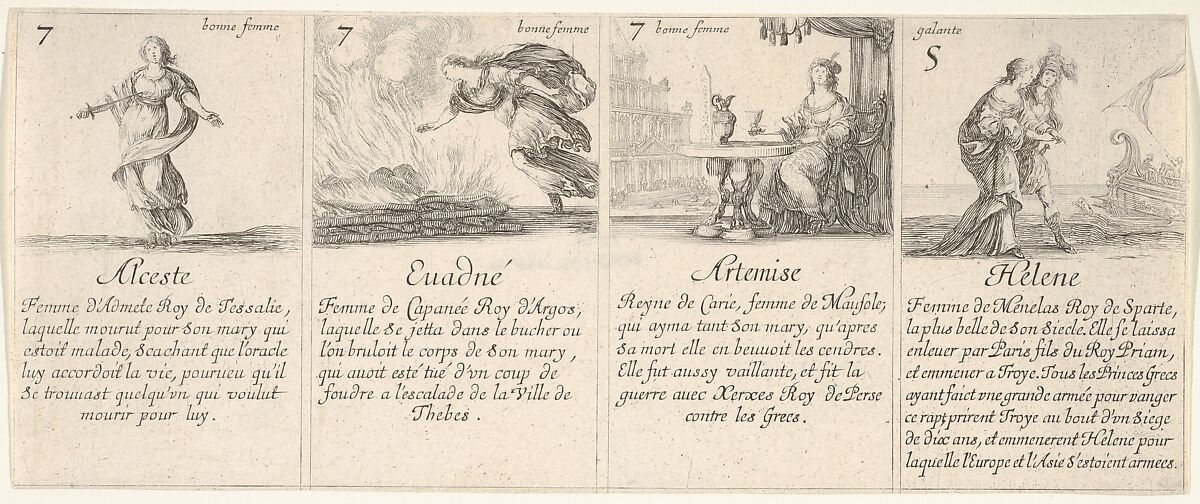 7 bonne femme
Alceste
Femme d'Admete Roy de Tessalie,
laquelle mourut pour son mary qui
estoit malade, scachant que l'oracle
luy accordoit la vie, pourueu qu'il
se trouuast quelqu'vn qui voulut
mourir pour luy.
7 bonne femme
Euadné
Femme de Capanée Roy d'Argos,
laquelle se jetta dans le bucher ou
l'on bruloit le corps de son mary,
qui auoit esté tué d'vn coup de
foudre a l'escalade de la Ville de
Thebes.
7 bonne femme
Artemise
Reyne de Carie, femme de Mausole;
qui ayma tant son mary, qu'apres
sa mort elle en beuuoit les cendres.
Elle fut aussy vaillante, et fit la
guerre auec Xerxes Roy de Perse
contre les Grecs.
galante
S
Hélene
Femme de Ménelas Roy de Sparte,
la plus belle de son siecle. Elle se laissa
enleuer par Paris fils du Roy Priam,
et emmener a Troye. Tous les Princes Grecs
ayant faict vne grande armée pour vanger
ce rapt, prirent Troye au bout d'vn siege
de dix ans, et emmenerent Hélene pour
laquelle l'Europe et l'Asie s'estoient armees.